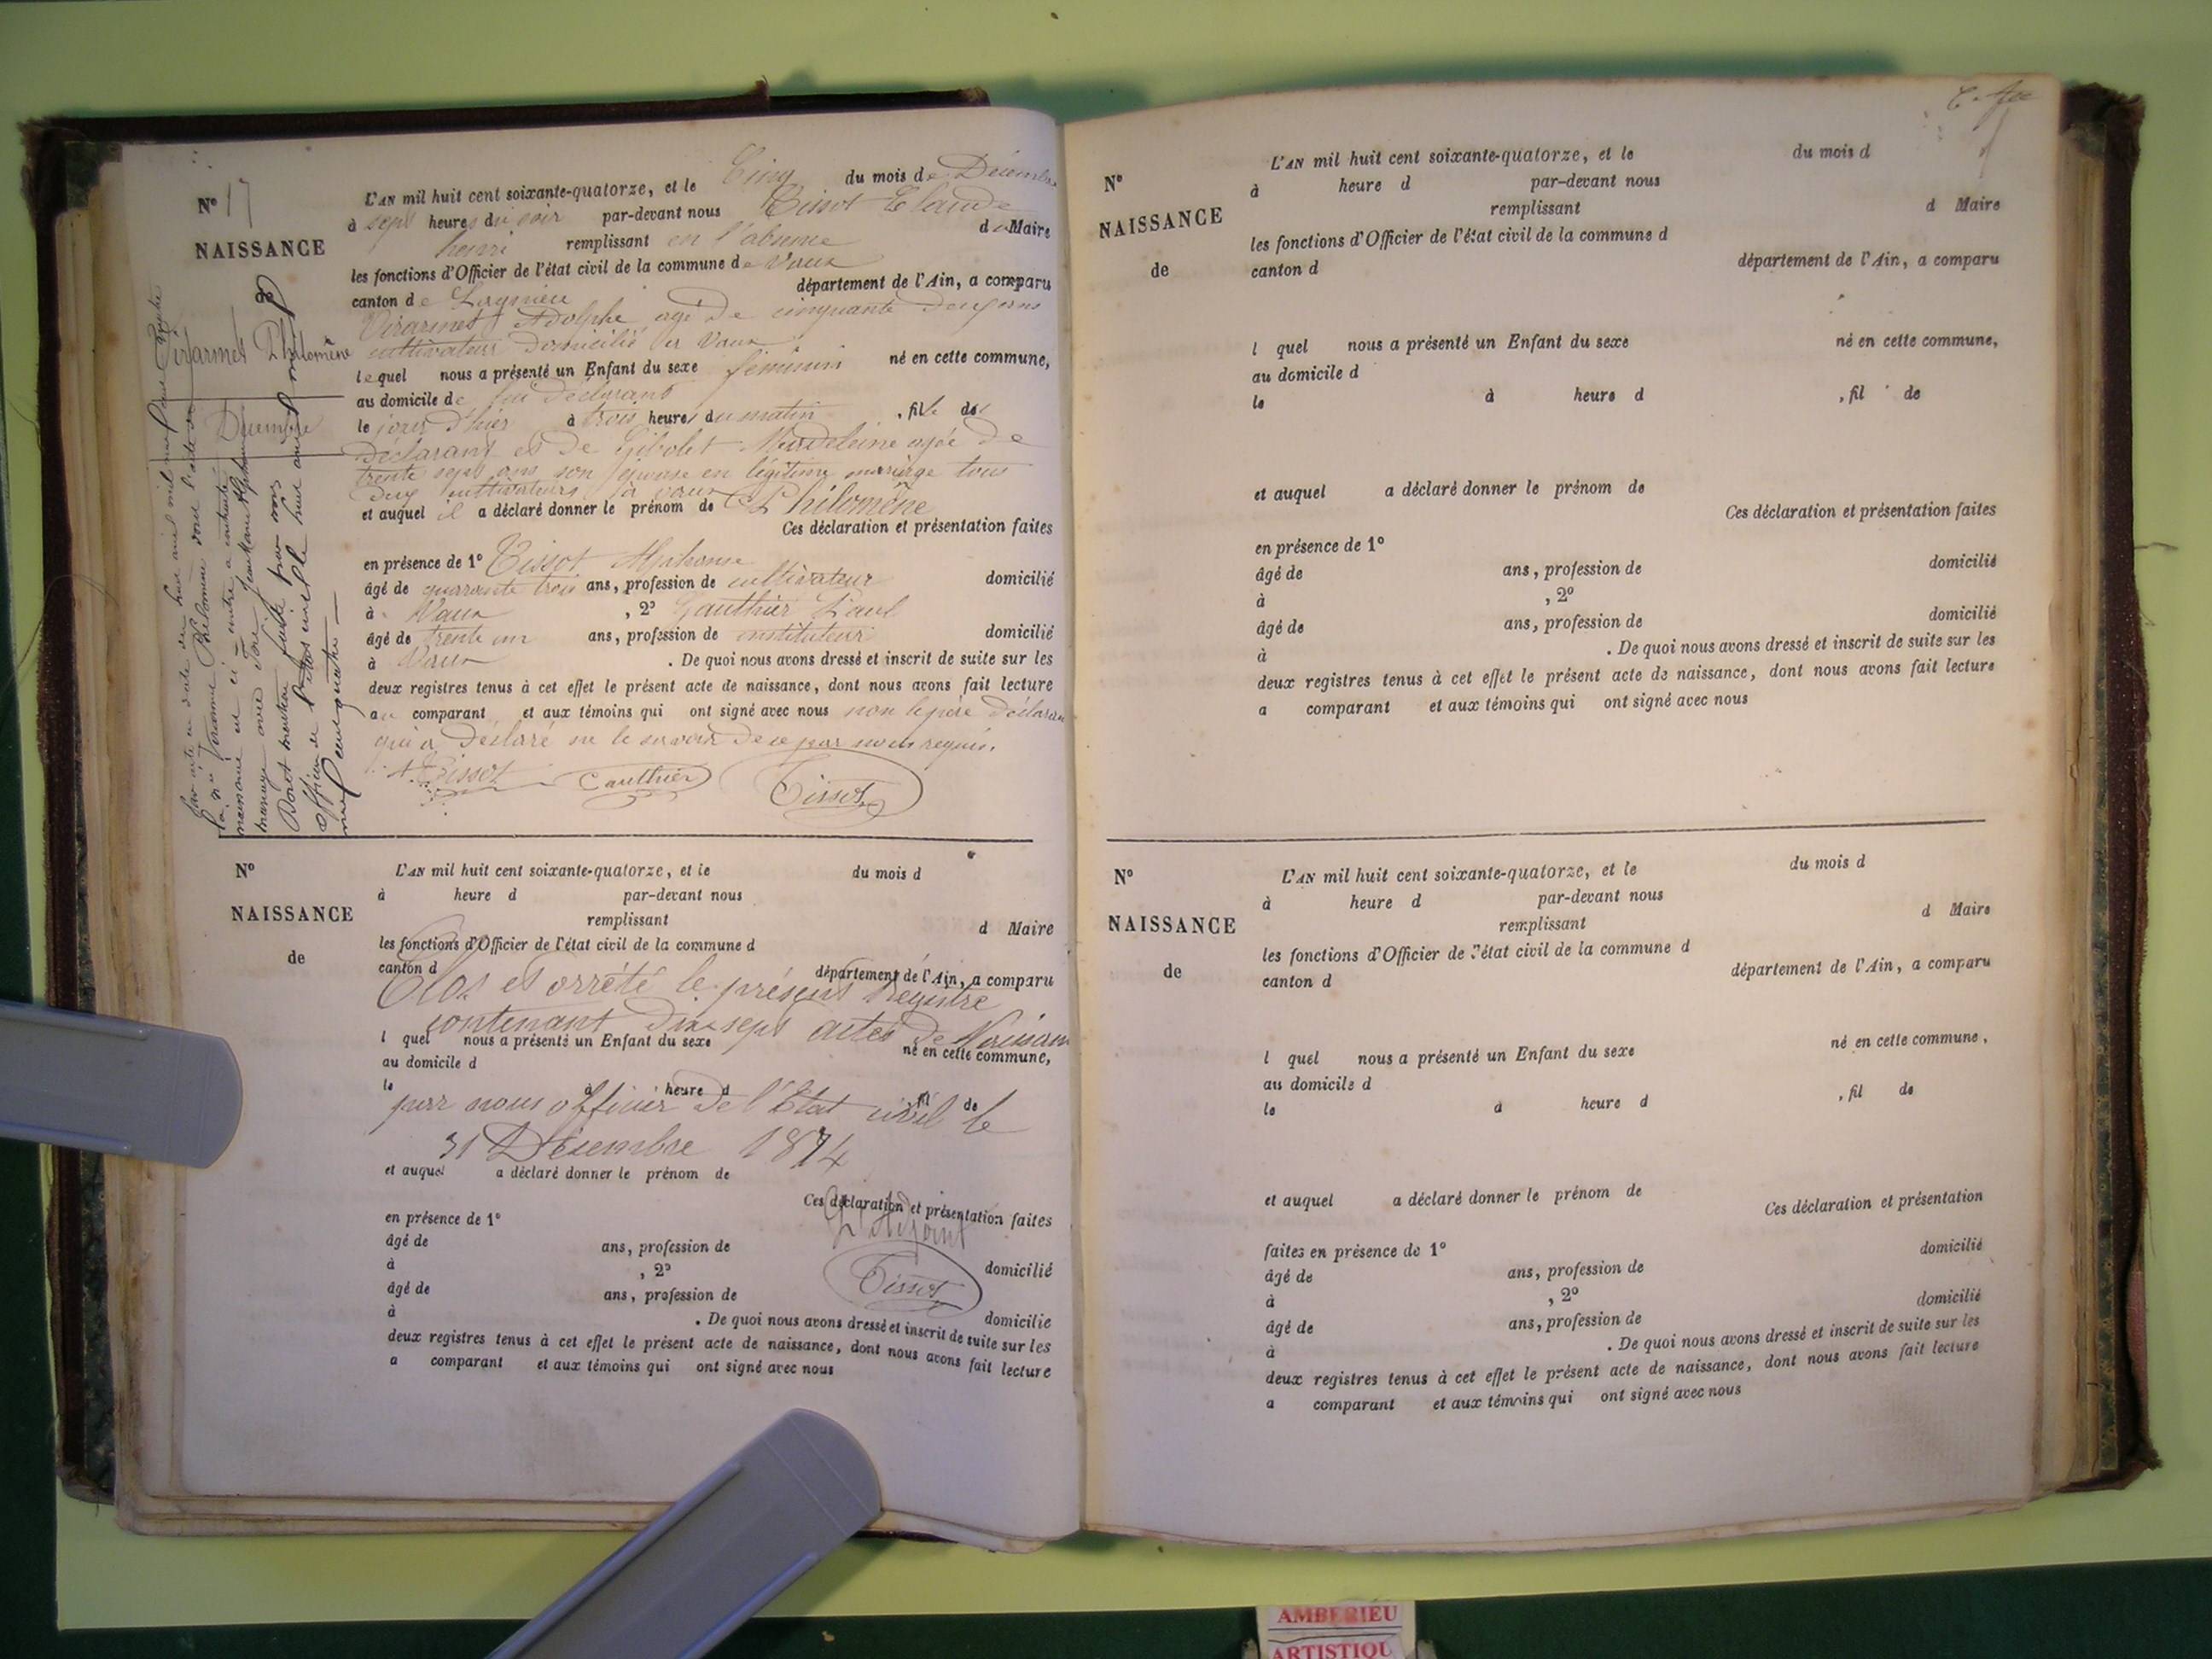 N° 17
NAISSANCE
de
Virarmet Philomène
Décembre
L'AN mil huit cent soixante-quatorze, et le Cinq du mois de Décembre
à sept heures du soir par-devant nous Tissot Claude
henri remplissant en l'absence du Maire
les fonctions d'Officier de l'état civil de la commune de Vaux
canton de Lagnieu département de l'Ain, a comparu
Virarmet Adolphe agé de cinquante deux ans
cultivateur domicilié à Vaux
lequel nous a présenté un Enfant du sexe féminin né en cette commune,
au domicile de lui déclarant
le jour d'hier à trois heures du matin, fille de
déclarant et de Gibolet Madeleine agée de
trente sept ans son épouse en légitime mariage tous
deux cultivateurs à vaux
et auquel il a déclaré donner le prénom de Philomène
Ces déclaration et présentation faites
en présence de 1° Tissot Alphonse
âgé de quarante trois ans, profession de cultivateur domicilié
à Vaux, 2° Gauthier Paul
âgé de trente un ans, profession de instituteur domicilié
à Vaux . De quoi nous avons dressé et inscrit de suite sur les
deux registres tenus à cet effet le présent acte de naissance, dont nous avons fait lecture
au comparant et aux témoins qui ont signé avec nous non le père déclarant
qui a déclaré ne le savoir de ce par nous requis.
A. Tissot Gauthier Tissot
N°
NAISSANCE
de
L'AN mil huit cent soixante-quatorze, et le du mois d
à heure d par-devant nous
remplissant d Maire
les fonctions d'Officier de l'état civil de la commune d
canton d département de l'Ain, a comparu
Clos et arrêté le présent Registre
contenant dix sept actes de Naissance
l quel nous a présenté un Enfant du sexe né en cette commune,
au domicile d
le à heure d , fil de
par nous officier de l'Etat civil le
31 Décembre 1874
et auquel a déclaré donner le prénom de
Ces déclaration et présentation faites
L'Adjoint
en présence de 1°
âgé de ans, profession de domicilié
à , 2°
Tissot
âgé de ans, profession de domicilié
à . De quoi nous avons dressé et inscrit de suite sur les
deux registres tenus à cet effet le présent acte de naissance, dont nous avons fait lecture
a comparant et aux témoins qui ont signé avec nous
N°
NAISSANCE
de
L'AN mil huit cent soixante-quatorze, et le du mois d
à heure d par-devant nous
remplissant d Maire
les fonctions d'Officier de l'état civil de la commune d
canton d département de l'Ain, a comparu
l quel nous a présenté un Enfant du sexe né en cette commune,
au domicile d
le à heure d , fil de
et auquel a déclaré donner le prénom de
Ces déclaration et présentation faites
en présence de 1°
âgé de ans, profession de domicilié
à , 2°
âgé de ans, profession de domicilié
à . De quoi nous avons dressé et inscrit de suite sur les
deux registres tenus à cet effet le présent acte de naissance, dont nous avons fait lecture
a comparant et aux témoins qui ont signé avec nous
N°
NAISSANCE
de
L'AN mil huit cent soixante-quatorze, et le du mois d
à heure d par-devant nous
remplissant d Maire
les fonctions d'Officier de l'état civil de la commune d
canton d département de l'Ain, a comparu
l quel nous a présenté un Enfant du sexe né en cette commune,
au domicile d
le à heure d , fil de
et auquel a déclaré donner le prénom de
Ces déclaration et présentation
faites en présence de 1° domicilié
âgé de ans, profession de
à , 2° domicilié
âgé de ans, profession de
à . De quoi nous avons dressé et inscrit de suite sur les
deux registres tenus à cet effet le présent acte de naissance, dont nous avons fait lecture
a comparant et aux témoins qui ont signé avec nous
AMBERIEU
ARTISTIQU